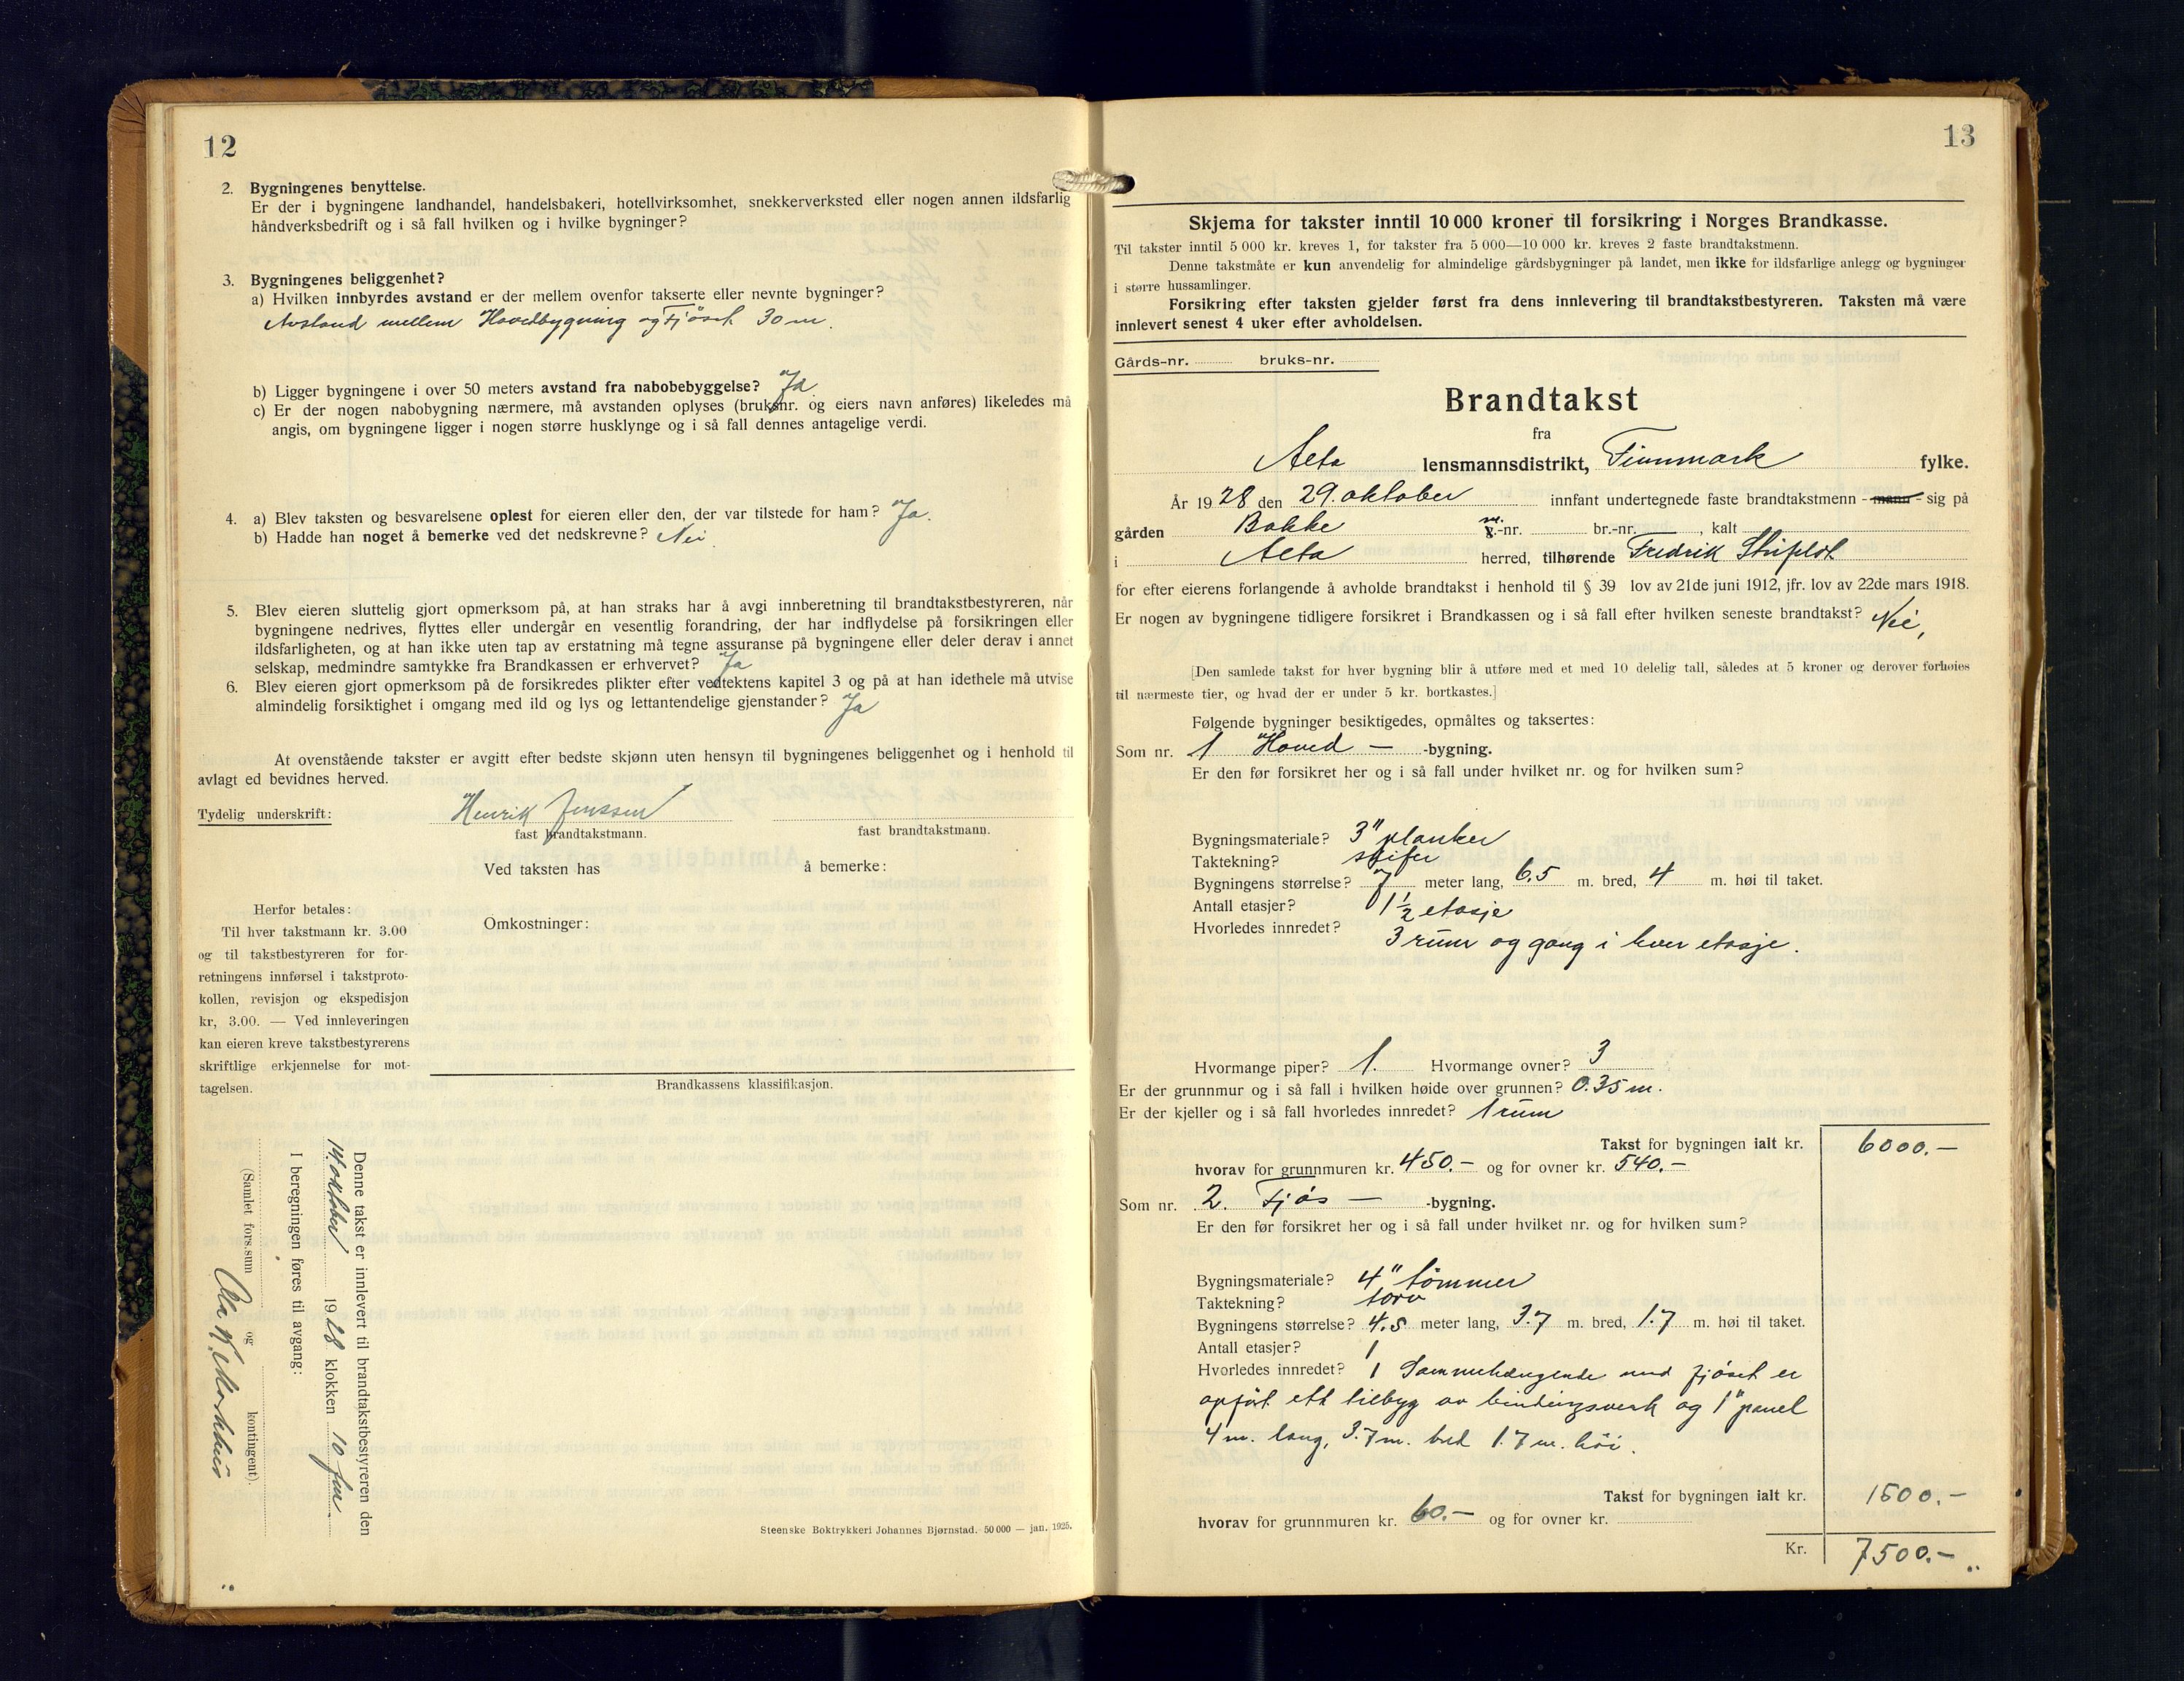 12
2. Bygningenes benyttelse.
Er der i bygningene landhandel, handelsbakeri, hotellvirksomhet, snekkerverksted eller nogen annen ildsfarlig
håndverksbedrift og i så fall hvilken og i hvilke bygninger?
3. Bygningenes beliggenhet?
a) Hvilken innbyrdes avstand er der mellem ovenfor takserte eller nevnte bygninger?
Avstand mellem Hovedbygning og Fjöset 30 m.
b) Ligger bygningene i over 50 meters avstand fra nabobebyggelse? Ja
c) Er der nogen nabobygning nærmere, må avstanden oplyses (bruksnr. og eiers navn anføres) likeledes må
angis, om bygningene ligger i nogen større husklynge og i så fall dennes antagelige verdi.
4. a) Blev taksten og besvarelsene oplest for eieren eller den, der var tilstede for ham? Ja.
b) Hadde han noget å bemerke ved det nedskrevne? Nei
5. Blev eieren sluttelig gjort opmerksom på, at han straks har å avgi innberetning til brandtakstbestyreren, når
bygningene nedrives, flyttes eller undergår en vesentlig forandring, der har indflydelse på forsikringen eller
ildsfarligheten, og at han ikke uten tap av erstatning må tegne assuranse på bygningene eller deler derav i annet
selskap, medmindre samtykke fra Brandkassen er erhvervet? Ja
6. Blev eieren gjort opmerksom på de forsikredes plikter efter vedtektens kapitel 3 og på at han idethele må utvise
almindelig forsiktighet i omgang med ild og lys og lettantendelige gjenstander? Ja
At ovenstående takster er avgitt efter bedste skjønn uten hensyn til bygningenes beliggenhet og i henhold til
avlagt ed bevidnes herved.
Tydelig underskrift: Henrik Jenssen
fast brandtakstmann. fast brandtakstmann.
Ved taksten has å bemerke:
Omkostninger:
Herfor betales:
Til hver takstmann kr. 3.00
og til takstbestyreren for for-
retningens innførsel i takstproto-
kollen, revisjon og ekspedisjon
kr, 3.00. — Ved innleveringen
kan eieren kreve takstbestyrerens
skriftlige erkjennelse for mot-
tagelsen.
Brandkassens klassifikasjon.
Denne takst er innlevert til brandtakstbestyreren den
14. oktober 1928 klokken 10 fm.
I beregningen føres til avgang:
(Samlet fors.sum og kontingent).
Steenske Boktrykkeri Johannes Bjørnstad. 50 000 — jan. 1925.
13
Skjema for takster inntil 10 000 kroner til forsikring i Norges Brandkasse.
Til takster inntil 5 000 kr. kreves 1, for takster fra 5 000—10 000 kr. kreves 2 faste brandtakstmenn.
Denne takstmåte er kun anvendelig for almindelige gårdsbygninger på landet, men ikke for ildsfarlige anlegg og bygninger
i større hussamlinger.
Forsikring efter taksten gjelder først fra dens innlevering til brandtakstbestyreren. Taksten må være
innlevert senest 4 uker efter avholdelsen.
Gårds-nr. bruks-nr.
Brandtakst
fra
Alta lensmannsdistrikt, Finnmark fylke.
År 1928 den 29. oktober innfant undertegnede faste brandtakstmenn - mann - sig på
gården Bakke m. g.-nr. br.-nr. , kalt
i Alta herred, tilhørende Fredrik Strifeldt
for efter eierens forlangende å avholde brandtakst i henhold til § 39 lov av 21de juni 1912, jfr. lov av 22de mars 1918.
Er nogen av bygningene tidligere forsikret i Brandkassen og i så fall efter hvilken seneste brandtakst? Nei,
[Den samlede takst for hver bygning blir å utføre med et med 10 delelig tall, således at 5 kroner og derover forhøies
til nærmeste tier, og hvad der er under 5 kr. bortkastes.]
Følgende bygninger besiktigedes, opmåltes og taksertes:
Som nr. 1 Hoved — -bygning.
Er den før forsikret her og i så fall under hvilket nr. og for hvilken sum?
Bygningsmateriale? 3" planker
Taktekning? skifer
Bygningens størrelse? 7 meter lang, 6.5 m. bred, 4 m. høi til taket.
Antall etasjer? 1 ½ etasje
Hvorledes innredet? 3 rum og gang i hver etasje.
Hvormange piper? 1. Hvormange ovner? 3
Er der grunnmur og i så fall i hvilken høide over grunnen? 0.35 m.
Er der kjeller og i så fall hvorledes innredet? 1 rum
Takst for bygningen ialt kr. 6000.—
hvorav for grunnmuren kr. 450.— og for ovner kr. 540.—
Som nr. 2. Fjös — -bygning.
Er den før forsikret her og i så fall under hvilket nr. og for hvilken sum?
Bygningsmateriale? 4" tömmer
Taktekning? torv
Bygningens størrelse? 4.5 meter lang, 3.7 m. bred, 1.7 m. høi til taket.
Antall etasjer? 1
Hvorledes innredet? 1 Sammenhengende med fjöset er
opfört ett tilbyg av bindingsverk og 1" panel
4 m. lang, 3.7 m. bred 1.7 m. höi.
Takst for bygningen ialt kr. 1500.—
hvorav for grunnmuren kr. 60.— og for ovner kr.
Kr. 7500.—